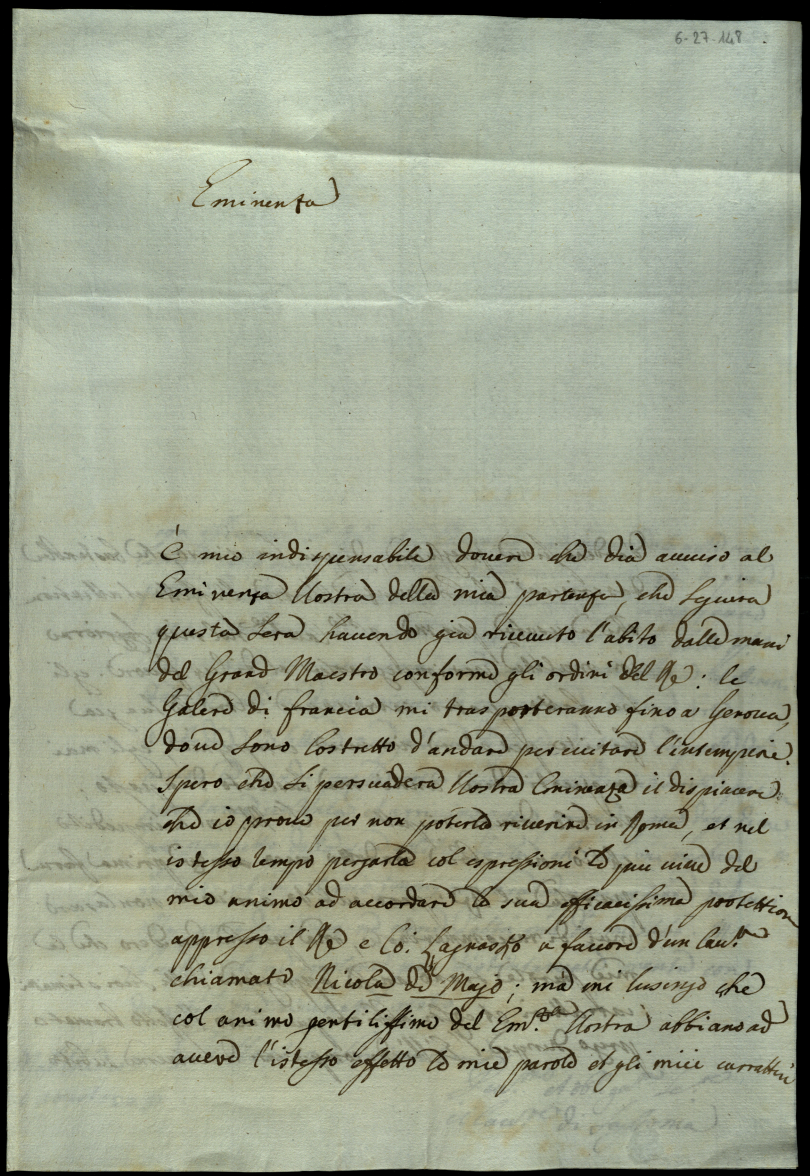 6-27-148
Eminenza
È mio indispensabile dovere che dia avviso al
Eminenza Vostra della mia partenza, che seguirà
questa sera havendo già ricevuto l'abito dalle mani
del Grand Maestro conforme gli ordini del Re: le
Galere di francia mi trasporteranno fino a Genova,
dove sono Costretto d'andare per evitare l'intemperie.
Spero che si persuaderà Vostra Eminenza il dispiacere
che io provo per non poterla riverire in Roma, et nel
istesso tempo pregarla col espressioni le più vive del
mio animo ad accordare la sua efficacissima protettione
appresso il Re e Co. Lagnasco a favore d'un
chiamato Nicola di Majo; ma mi lusingo che
col animo gentilissimo del Em.za Vostra abbiano ad
avere l'istesso effetto le mie parole et gli miei caratteri